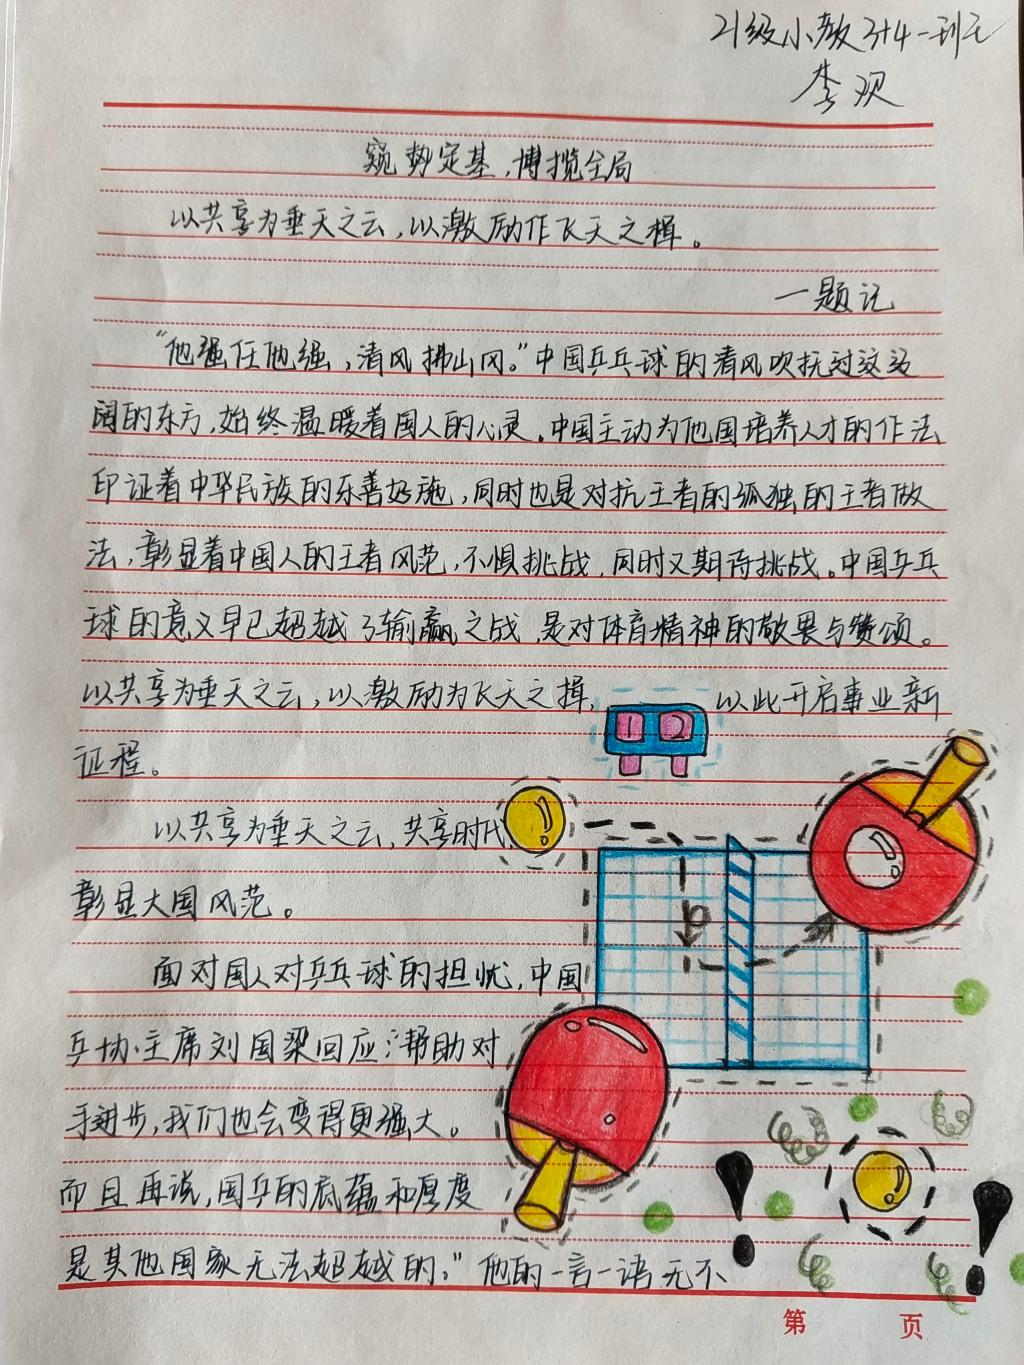 21级小教3+4一班
李欢
窥势定基,博揽全局
以共享为垂天之云,以激励作飞天之楫。
一题记
“他强任他强,清风拂山冈。”中国乒乓球的清风吹抚过这辽
阔的东方,始终温暖着国人的心灵。中国主动为他国培养人才的作法
印证着中华民族的乐善好施,同时也是对抗王者的孤独的王者做
法,彰显着中国人的王者风范,不惧挑战,同时又期待挑战。中国乒乓
球的意义早已超越了输赢之战,是对体育精神的敬畏与赞颂。
以共享为垂天之云,以激励为飞天之楫,以此开启事业新
1 2
征程。
以共享为垂天之云,共享时代,
彰显大国风范。
面对国人对乒乓球的担忧,中国
乒协主席刘国梁回应:“帮助对
手进步,我们也会变得更强大。
而且再说,国乒的底蕴和厚度
是其他国家无法超越的。”他的一言一语无不
第 页